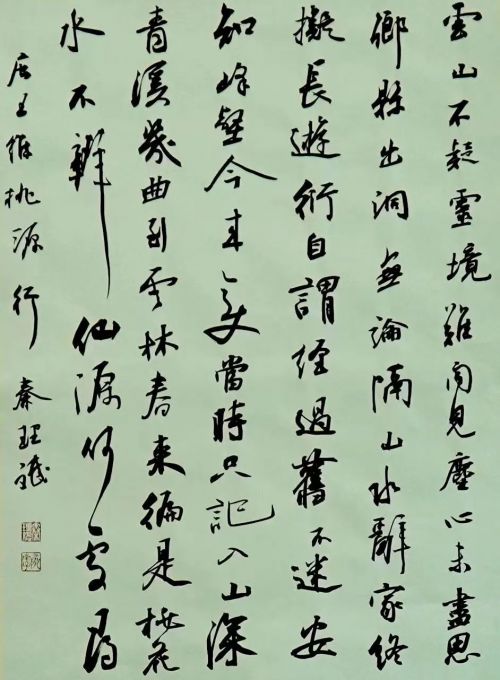 雲山不疑靈境難聞見塵心未盡思
鄉縣出洞無論隔山水辭家終
擬長遊衍自謂經過舊不迷安
知峰壑今來變當時只記入山深
青溪幾曲到雲林春來徧是桃花
水不辨仙源何處尋
唐王維桃源行 秦理